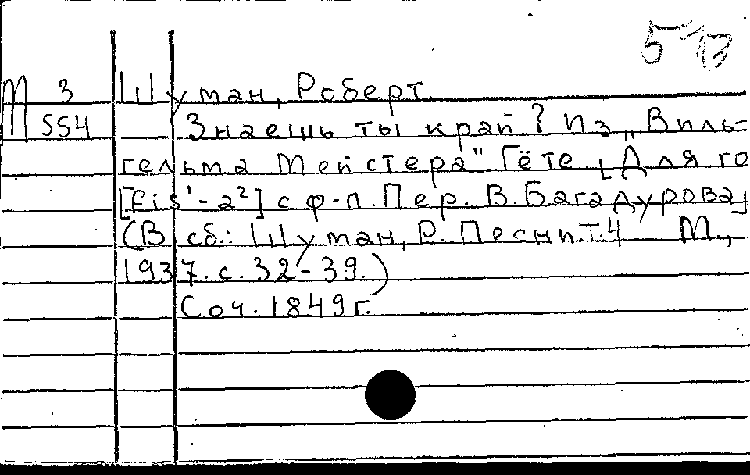 М 3 Шуман, Роберт
554 Знаешь ты край? Из „Виль-
гельма Мейстера" Гёте. [Для го
[fis¹-a²] с ф-п. Пер. В. Багадурова]
(В сб.: Шуман, Р. Песни. Т.4 М.,
1937. с. 32-39.)
Соч. 1849 г.